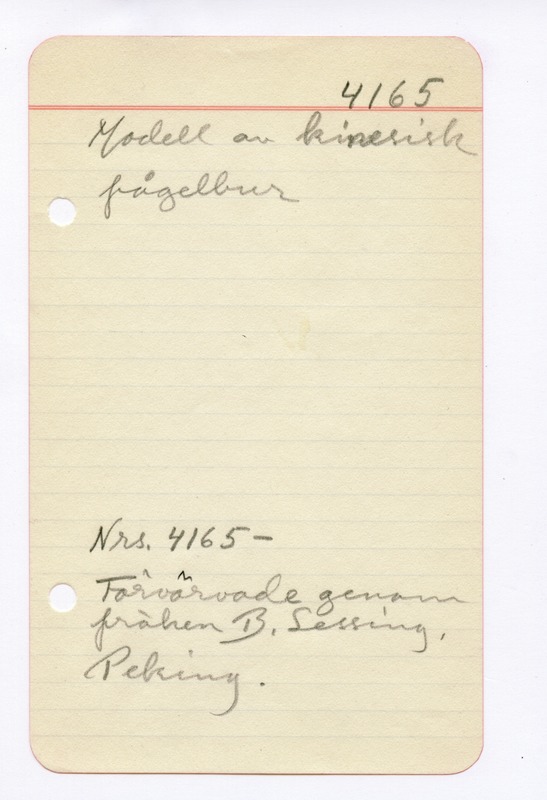 4165
Modell av kinesisk
fågelbur
Nrs. 4165-
Förvärvade genom
fröken B. Lessing,
Peking.